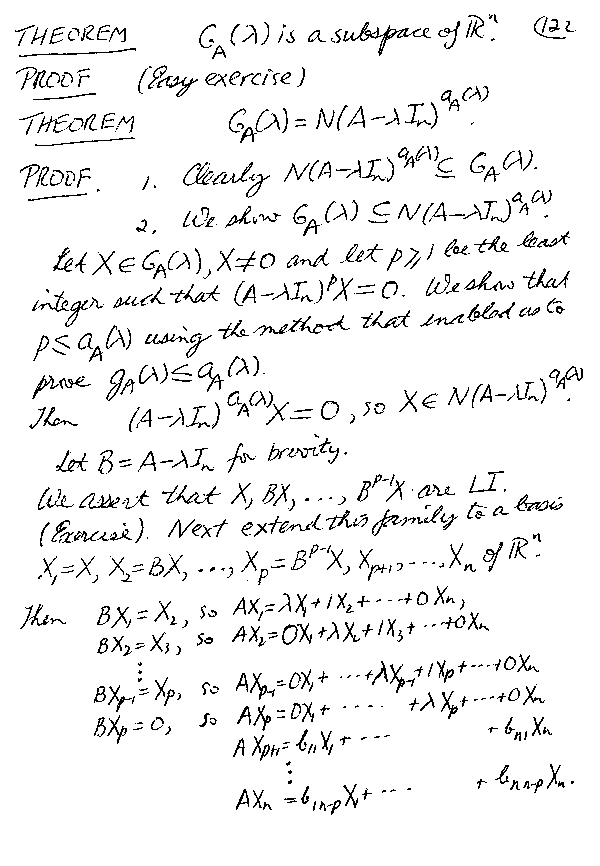 THEOREM G_A(λ) is a subspace of ℝⁿ. 122
PROOF (Easy exercise)
THEOREM G_A(λ) = N(A-λI_n)^{a_A(λ)}.
PROOF. 1. Clearly N(A-λI_n)^{a_A(λ)} ⊆ G_A(λ).
2. We show G_A(λ) ⊆ N(A-λI_n)^{a_A(λ)}.
Let X ∈ G_A(λ), X ≠ 0 and let p ≥ 1 be the least
integer such that (A-λI_n)^p X = 0. We show that
p ≤ a_A(λ) using the method that enabled us to
prove g_A(λ) ≤ a_A(λ).
Then (A-λI_n)^{a_A(λ)} X = 0, so X ∈ N(A-λI_n)^{a_A(λ)}.
Let B = A-λI_n for brevity.
We assert that X, BX, ..., B^{p-1}X are LI.
(Exercise). Next extend this family to a basis
X_1 = X, X_2 = BX, ..., X_p = B^{p-1}X, X_{p+1}, ..., X_n of ℝⁿ.
Then BX_1 = X_2, so AX_1 = λX_1 + 1X_2 + ··· + 0X_n,
BX_2 = X_3, so AX_2 = 0X_1 + λX_2 + 1X_3 + ··· + 0X_n
⋮
BX_{p-1} = X_p, so AX_{p-1} = 0X_1 + ··· + λX_{p-1} + 1X_p + ··· + 0X_n
BX_p = 0, so AX_p = 0X_1 + ····· + λX_p + ··· + 0X_n
AX_{p+1} = b_{11}X_1 + ··· + b_{n1}X_n
⋮
AX_n = b_{1n-p}X_1 + ··· + b_{nn-p}X_n.